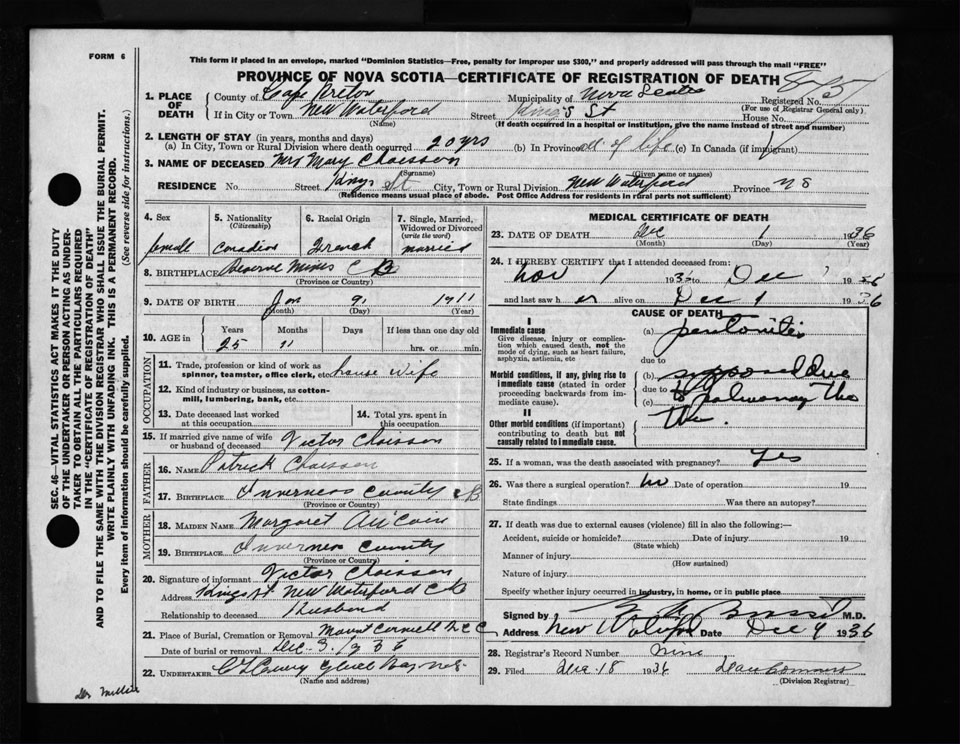 FORM 6
This form if placed in an envelope, marked "Dominion Statistics—Free, penalty for improper use $300," and properly addressed will pass through the mail "FREE"
PROVINCE OF NOVA SCOTIA—CERTIFICATE OF REGISTRATION OF DEATH
1. PLACE OF DEATH
County of Cape Breton Municipality of Nova Scotia Registered No.
(For use of Registrar General only)
If in City or Town New Waterford Street King's St House No.
(Name) (If death occurred in a hospital or institution, give the name instead of street and number)
2. LENGTH OF STAY (in years, months and days)
(a) In City, Town or Rural Division where death occurred 20 yrs (b) In Province all of life (c) In Canada (if immigrant)
3. NAME OF DECEASED Mrs Mary Chaisson
(Surname) (Given name or names)
RESIDENCE No. Street Kings St City, Town or Rural Division New Waterford Province N S
(Residence means usual place of abode. Post Office Address for residents in rural parts not sufficient)
4. Sex
female
5. Nationality
(Citizenship)
Canadian
6. Racial Origin
French
7. Single, Married, Widowed or Divorced
(write the word)
married
8. BIRTHPLACE Reserve Mines C B
(Province or Country)
9. DATE OF BIRTH Jan 9, 1911
(Month) (Day) (Year)
10. AGE in Years Months Days If less than one day old
25 11 hrs. or min.
OCCUPATION
11. Trade, profession or kind of work as spinner, teamster, office clerk, etc. house wife
12. Kind of industry or business, as cotton-mill, lumbering, bank, etc.
13. Date deceased last worked at this occupation
14. Total yrs. spent in this occupation
15. If married give name of wife or husband of deceased Victor Chaisson
FATHER
16. NAME Patrick Chaisson
17. BIRTHPLACE Inverness County C B
MOTHER
18. MAIDEN NAME Margaret
19. BIRTHPLACE Inverness County
(Province or Country)
20. Signature of informant Victor Chaisson
Address Kings St New Waterford C B
Relationship to deceased Husband
21. Place of Burial, Cremation or Removal Mount
Date of burial or removal Dec. 3, 1936
22. UNDERTAKER Glace Bay N.S.
(Name and address)
MEDICAL CERTIFICATE OF DEATH
23. DATE OF DEATH Dec 1 1936
(Month) (Day) (Year)
24. I HEREBY CERTIFY that I attended deceased from:
Nov 1 1936 to Dec 1 1936
and last saw h er alive on Dec 1 1936
CAUSE OF DEATH
I
Immediate cause
Give disease, injury or complication which caused death, not the mode of dying, such as heart failure, asphyxia, asthenia, etc
(a) peritonitis
due to
Morbid conditions, if any, giving rise to immediate cause (stated in order proceeding backwards from immediate cause).
(b) supposed due
due to
(c) to pulmonary
II
Other morbid conditions (if important) contributing to death but not causally related to immediate cause.
25. If a woman, was the death associated with pregnancy? yes
26. Was there a surgical operation? no Date of operation 19
State findings Was there an autopsy?
27. If death was due to external causes (violence) fill in also the following:—
Accident, suicide or homicide? Date of injury 19
(State which)
Manner of injury
(How sustained)
Nature of injury
Specify whether injury occurred in industry, in home, or in public place
Signed by M.D.
Address New Waterford Date Dec 4 1936
28. Registrar's Record Number
29. Filed 18 1936
(Division Registrar)
SEC. 46—VITAL STATISTICS ACT MAKES IT THE DUTY
OF THE UNDERTAKER OR PERSON ACTING AS UNDER-
TAKER TO OBTAIN ALL THE PARTICULARS REQUIRED
IN THE "CERTIFICATE OF REGISTRATION OF DEATH"
AND TO FILE THE SAME WITH THE DIVISION REGISTRAR WHO SHALL ISSUE THE BURIAL PERMIT.
WRITE PLAINLY WITH UNFADING INK. THIS IS A PERMANENT RECORD.
Every item of information should be carefully supplied. (See reverse side for instructions.)